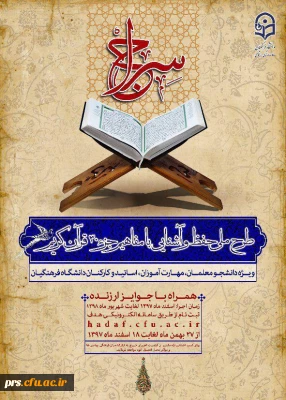 سراج
طرح ملی حفظ و آشنایی با مفاهیم جزء ۳۰ قرآن کریم
ویژه دانشجو معلمان، مهارت آموزان، اساتید و کارکنان دانشگاه فرهنگیان
همراه با جوایز ارزنده
زمان اجرا: اسفند ماه ۱۳۹۷ لغایت شهریور ماه ۱۳۹۸
ثبت نام از طریق سامانه الکترونیکی هدف
hadaf.cfu.ac.ir
از ۲۷ بهمن ماه لغایت ۱۸ اسفند ماه ۱۳۹۷
prs.cfu.ac.ir